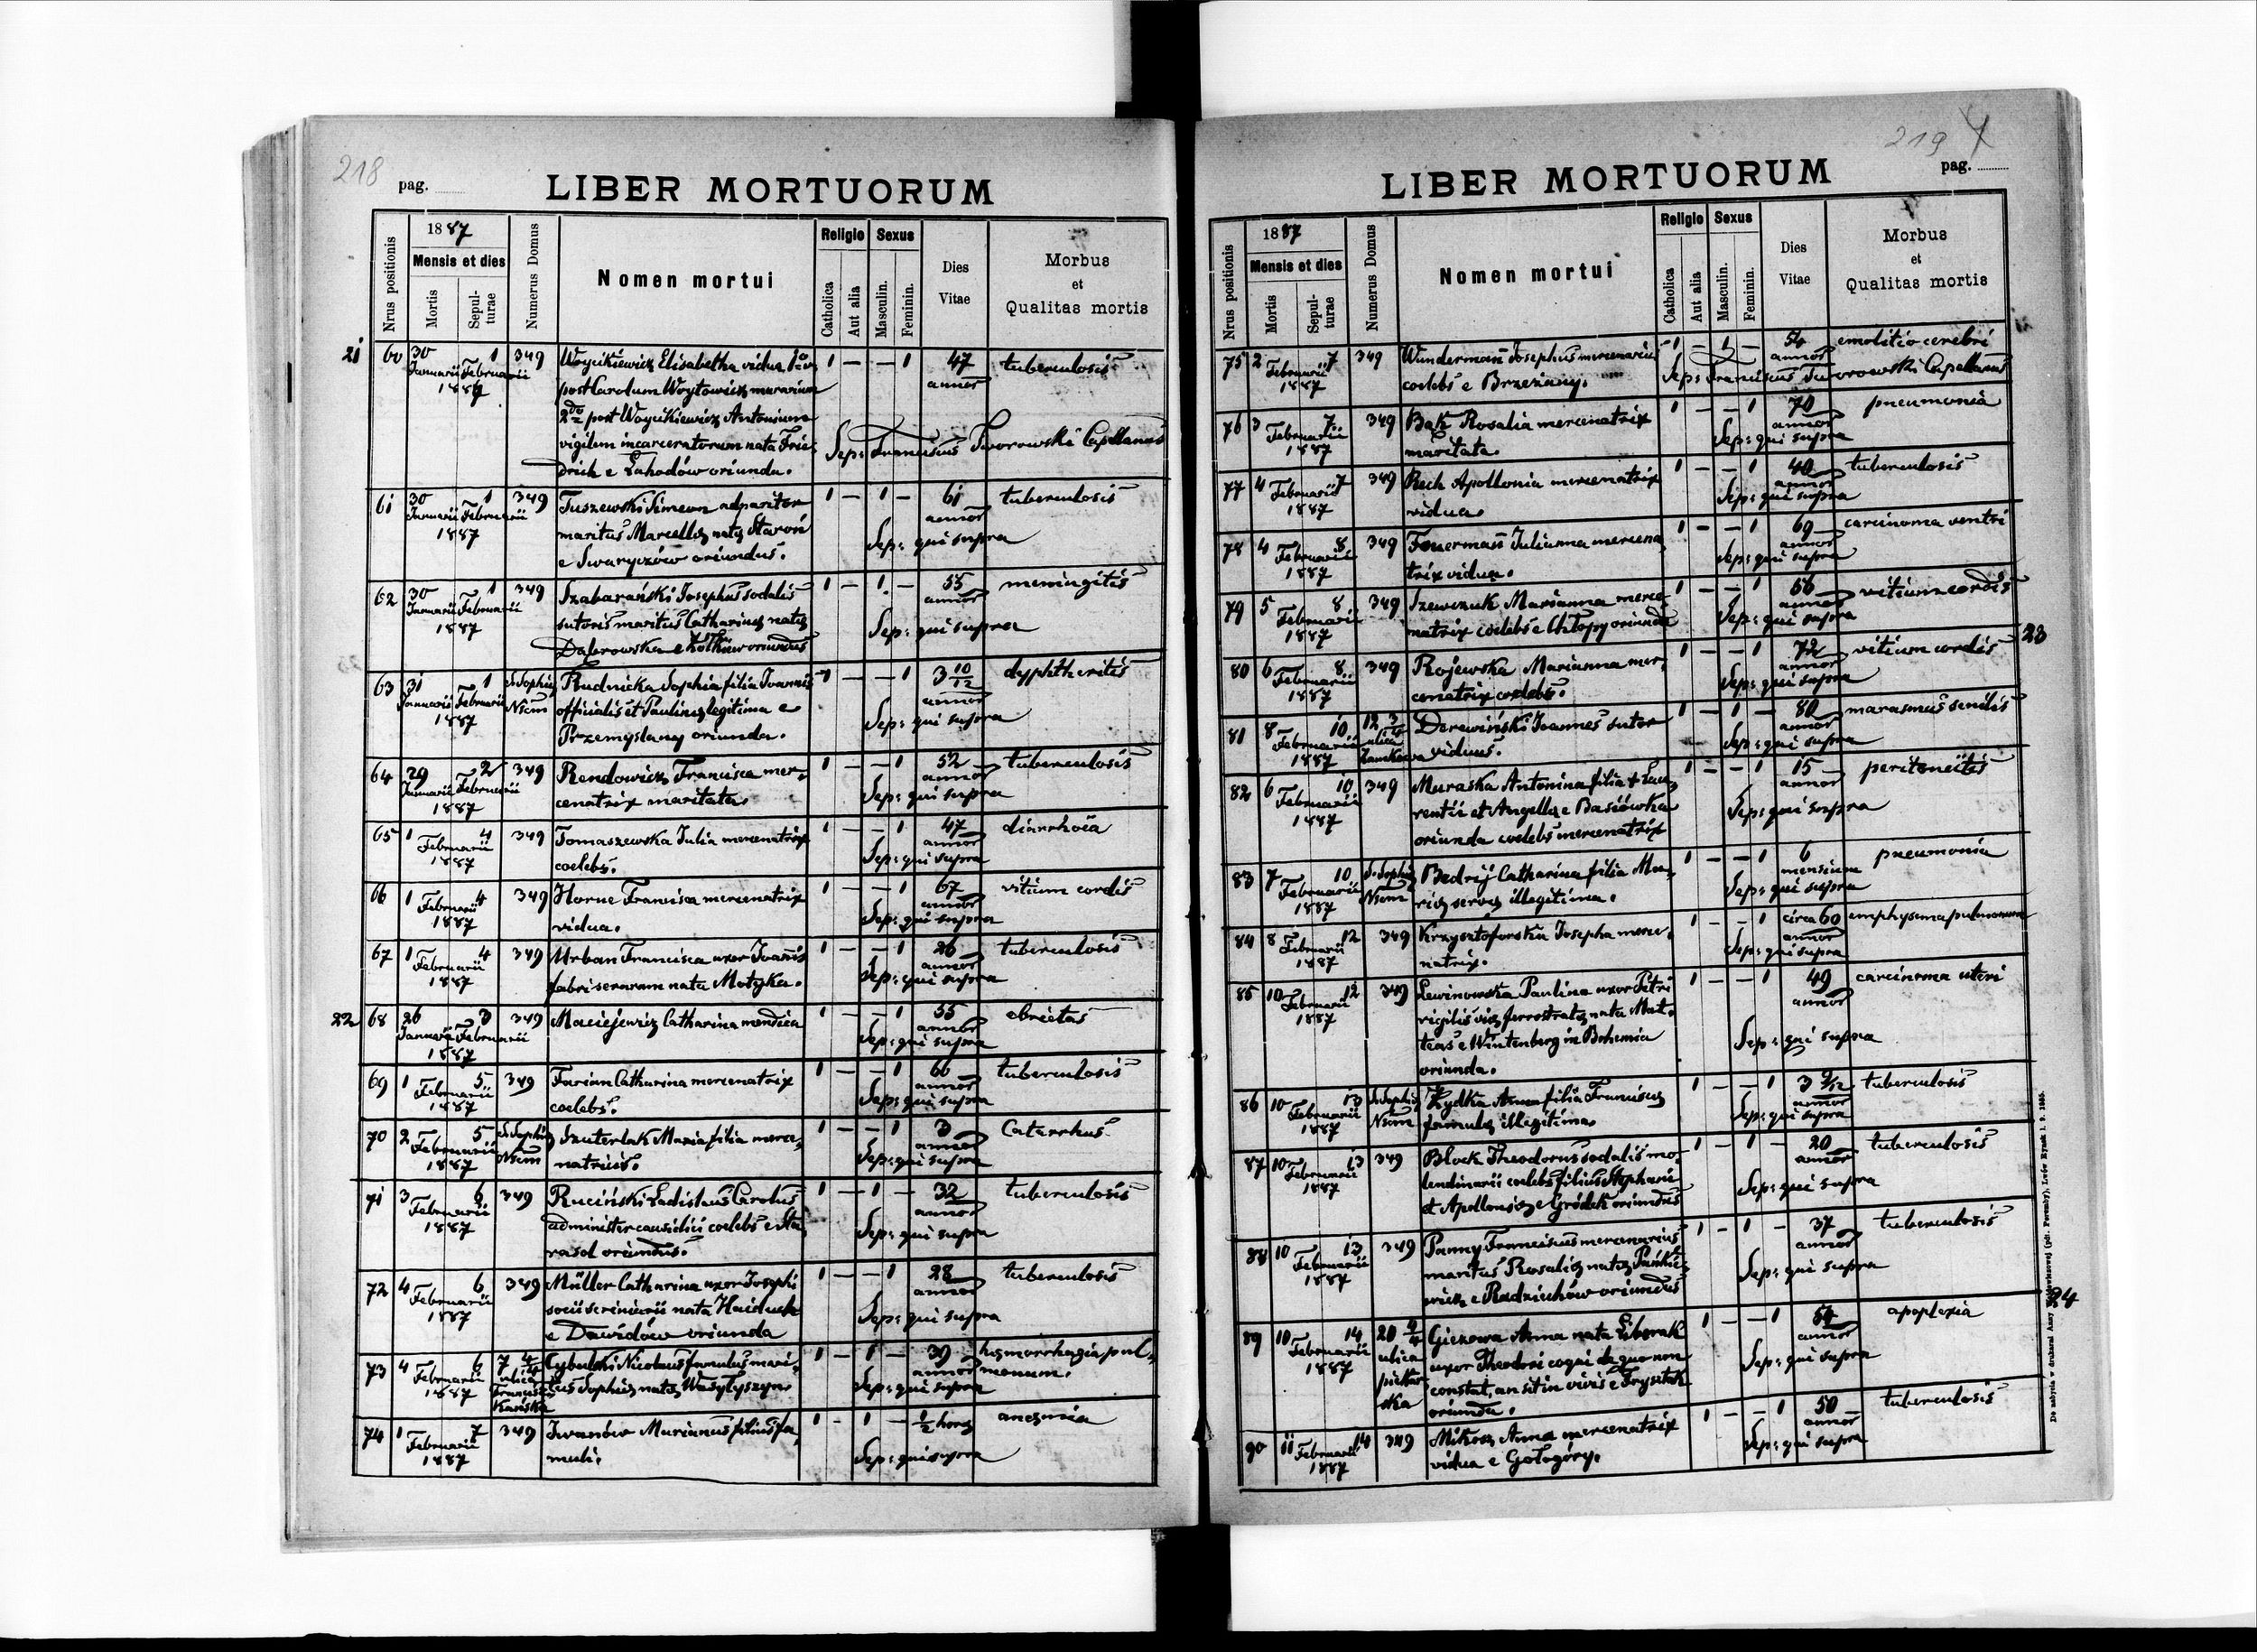 218
pag.
LIBER MORTUORUM
Nrus positionis
1887
Mensis et dies
Mortis
Sepul-
turae
Numerus Domus
Nomen mortui
Religio
Catholica
Aut alia
Sexus
Masculin.
Feminin.
Dies
Vitae
Morbus
et
Qualitas mortis
21
60 30 Januarii 1 Februarii 1887 349 Woycikiewicz Elisabetha vidua 1o 1 — — 1 47 annor tuberculosis
post Carolum Woytowicz murarium
2do post Woycikiewicz Antonium
vigilem incarceratorum nata Frie-
drich e Lahodów oriunda.
Sep: Franciscus Tworowski Capellanus
61 30 Januarii 1 Februarii 1887 349 Tuszewski Simeon adparitor 1 — 1 — 61 annor tuberculosis
maritus Marcellae natae Staroń
e Swaryczów oriundus.
Sep: qui supra
62 30 Januarii 1 Februarii 1887 349 Szabarański Josephus sodalis 1 — 1 — 55 annor meningitis
sutoris maritus Catharinae natae
Dąbrowska e Żółkiew oriundus
Sep: qui supra
63 31 Januarii 1 Februarii 1887 S. Sophia Nsum Rudnicka Sophia filia Joannis 1 — — 1 3 10/12 annor dyphtheritis
officialis et Paulinae legitima e
Przemyslany oriunda.
Sep: qui supra
64 29 Januarii 2 Februarii 1887 349 Rendowicz Francisca mer- 1 — — 1 52 annor tuberculosis
cenatrix maritata.
Sep: qui supra
65 1 4 Februarii 1887 349 Tomaszewska Julia mercenatrix 1 — — 1 47 annor diarrhoea
coelebs.
Sep: qui supra
66 1 4 Februarii 1887 349 Horne Francisca mercenatrix 1 — — 1 67 annor vitium cordis
vidua.
Sep: qui supra
67 1 4 Februarii 1887 349 Urban Francisca uxor Joannis 1 — — 1 26 annor tuberculosis
fabri serarum nata Motyka.
Sep: qui supra
22
68 26 Januarii 3 Februarii 1887 349 Maciejewicz Catharina mendica 1 — — 1 55 annor ebrietas
Sep: qui supra
69 1 5 Februarii 1887 349 Farian Catharina mercenatrix 1 — — 1 60 annor tuberculosis
coelebs.
Sep: qui supra
70 2 5 Februarii 1887 S. Sophia Nsum Szuterlak Maria filia merce- 1 — — 1 3 annor Catarrhus
natricis.
Sep: qui supra
71 3 6 Februarii 1887 349 Ruciński Ladislaus Carolus 1 — 1 — 32 annor tuberculosis
administer causidici coelebs e Sta-
rasol oriundus.
Sep: qui supra
72 4 6 Februarii 1887 349 Müller Catharina uxor Josephi 1 — — 1 28 annor tuberculosis
socii scriniarii nata Haiduck
e Dawidów oriunda
Sep: qui supra
73 4 6 Februarii 1887 7 4/4 ulica Francisz Kańska Cybulski Nicolaus famulus mari- 1 — 1 — 39 annor haemorrhagia pul-
tus Sophiae natae Wasyłyszyn. monum.
Sep: qui supra
74 1 7 Februarii 1887 349 Iwanów Marianus filius fa- 1 — 1 — 1/2 horae anaemia
muli.
Sep: qui supra
219
pag.
LIBER MORTUORUM
Nrus positionis
1887
Mensis et dies
Mortis
Sepul-
turae
Numerus Domus
Nomen mortui
Religio
Catholica
Aut alia
Sexus
Masculin.
Feminin.
Dies
Vitae
Morbus
et
Qualitas mortis
75 2 7 Februarii 1887 349 Wunderman Josephus mercenarius 1 — 1 — 54 annor emolitio cerebri
coelebs e Brzeżany.
Sep: Franciscus Tworowski Capellanus
76 3 7 Februarii 1887 349 Bąk Rosalia mercenatrix 1 — — 1 70 annor pneumonia
maritata.
Sep: qui supra
77 4 7 Februarii 1887 349 Rech Apollonia mercenatrix 1 — — 1 40 annor tuberculosis
vidua.
Sep: qui supra
78 4 8 Februarii 1887 349 Feuerman Julianna mercena- 1 — — 1 69 annor carcinoma ventri
trix vidua.
Sep: qui supra
79 5 8 Februarii 1887 349 Szewczuk Marianna merce- 1 — — 1 68 annor vitium cordis
natrix coelebs e Chłopy oriunda
Sep: qui supra
23
80 6 8 Februarii 1887 349 Rojewska Marianna mer- 1 — — 1 72 annor vitium cordis
cenatrix coelebs.
Sep: qui supra
81 8 10 Februarii 1887 12 3/4 ulica Zamkowa Derewiński Joannes sutor 1 — 1 — 80 annor marasmus senilis
viduus.
Sep: qui supra
82 6 10 Februarii 1887 349 Muraska Antonina filia + Lau- 1 — — 1 15 annor peritoneitis
rentii et Angellae e Basiówka
oriunda coelebs mercenatrix
Sep: qui supra
83 7 10 Februarii 1887 S. Sophia Nsum Bedrij Catharina filia Ma- 1 — — 1 6 mensium pneumonia
riae servae illegitima.
Sep: qui supra
84 8 12 Februarii 1887 349 Krzysztoforska Josepha merce- 1 — — 1 circa 60 annor emphysema pulmonum
natrix.
Sep: qui supra
85 10 12 Februarii 1887 349 Lewinowska Paulina uxor Petri 1 — — 1 49 annor carcinoma uteri
vigilis viae ferrostratae nata Mat-
teas e Wintenberg in Bohemia
oriunda.
Sep: qui supra
86 10 13 Februarii 1887 S. Sophia Nsum Żydka Anna filia Franciscae 1 — — 1 3 9/12 annor tuberculosis
famulae illegitima.
Sep: qui supra
87 10 13 Februarii 1887 349 Block Theodorus sodalis mo- 1 — 1 — 20 annor tuberculosis
lendinarii coelebs filius Stephani
et Apolloniae e Gródek oriundus
Sep: qui supra
88 10 13 Februarii 1887 349 Panny Franciscus mercenarius 1 — 1 — 37 annor tuberculosis
maritus Rosaliae natae Pańkie-
wicz e Radziechów oriundus
Sep: qui supra
24
89 10 14 Februarii 1887 20 4/4 ulica piekarska Giezowa Anna nata Liborak 1 — — 1 54 annor apoplexia
uxor Theodori coqui de quo non
constat, an sit in vivis e Frysztak
oriunda.
Sep: qui supra
90 11 14 Februarii 1887 349 Mikosz Anna mercenatrix 1 — — 1 50 annor tuberculosis
vidua e Gołogóry.
Sep: qui supra